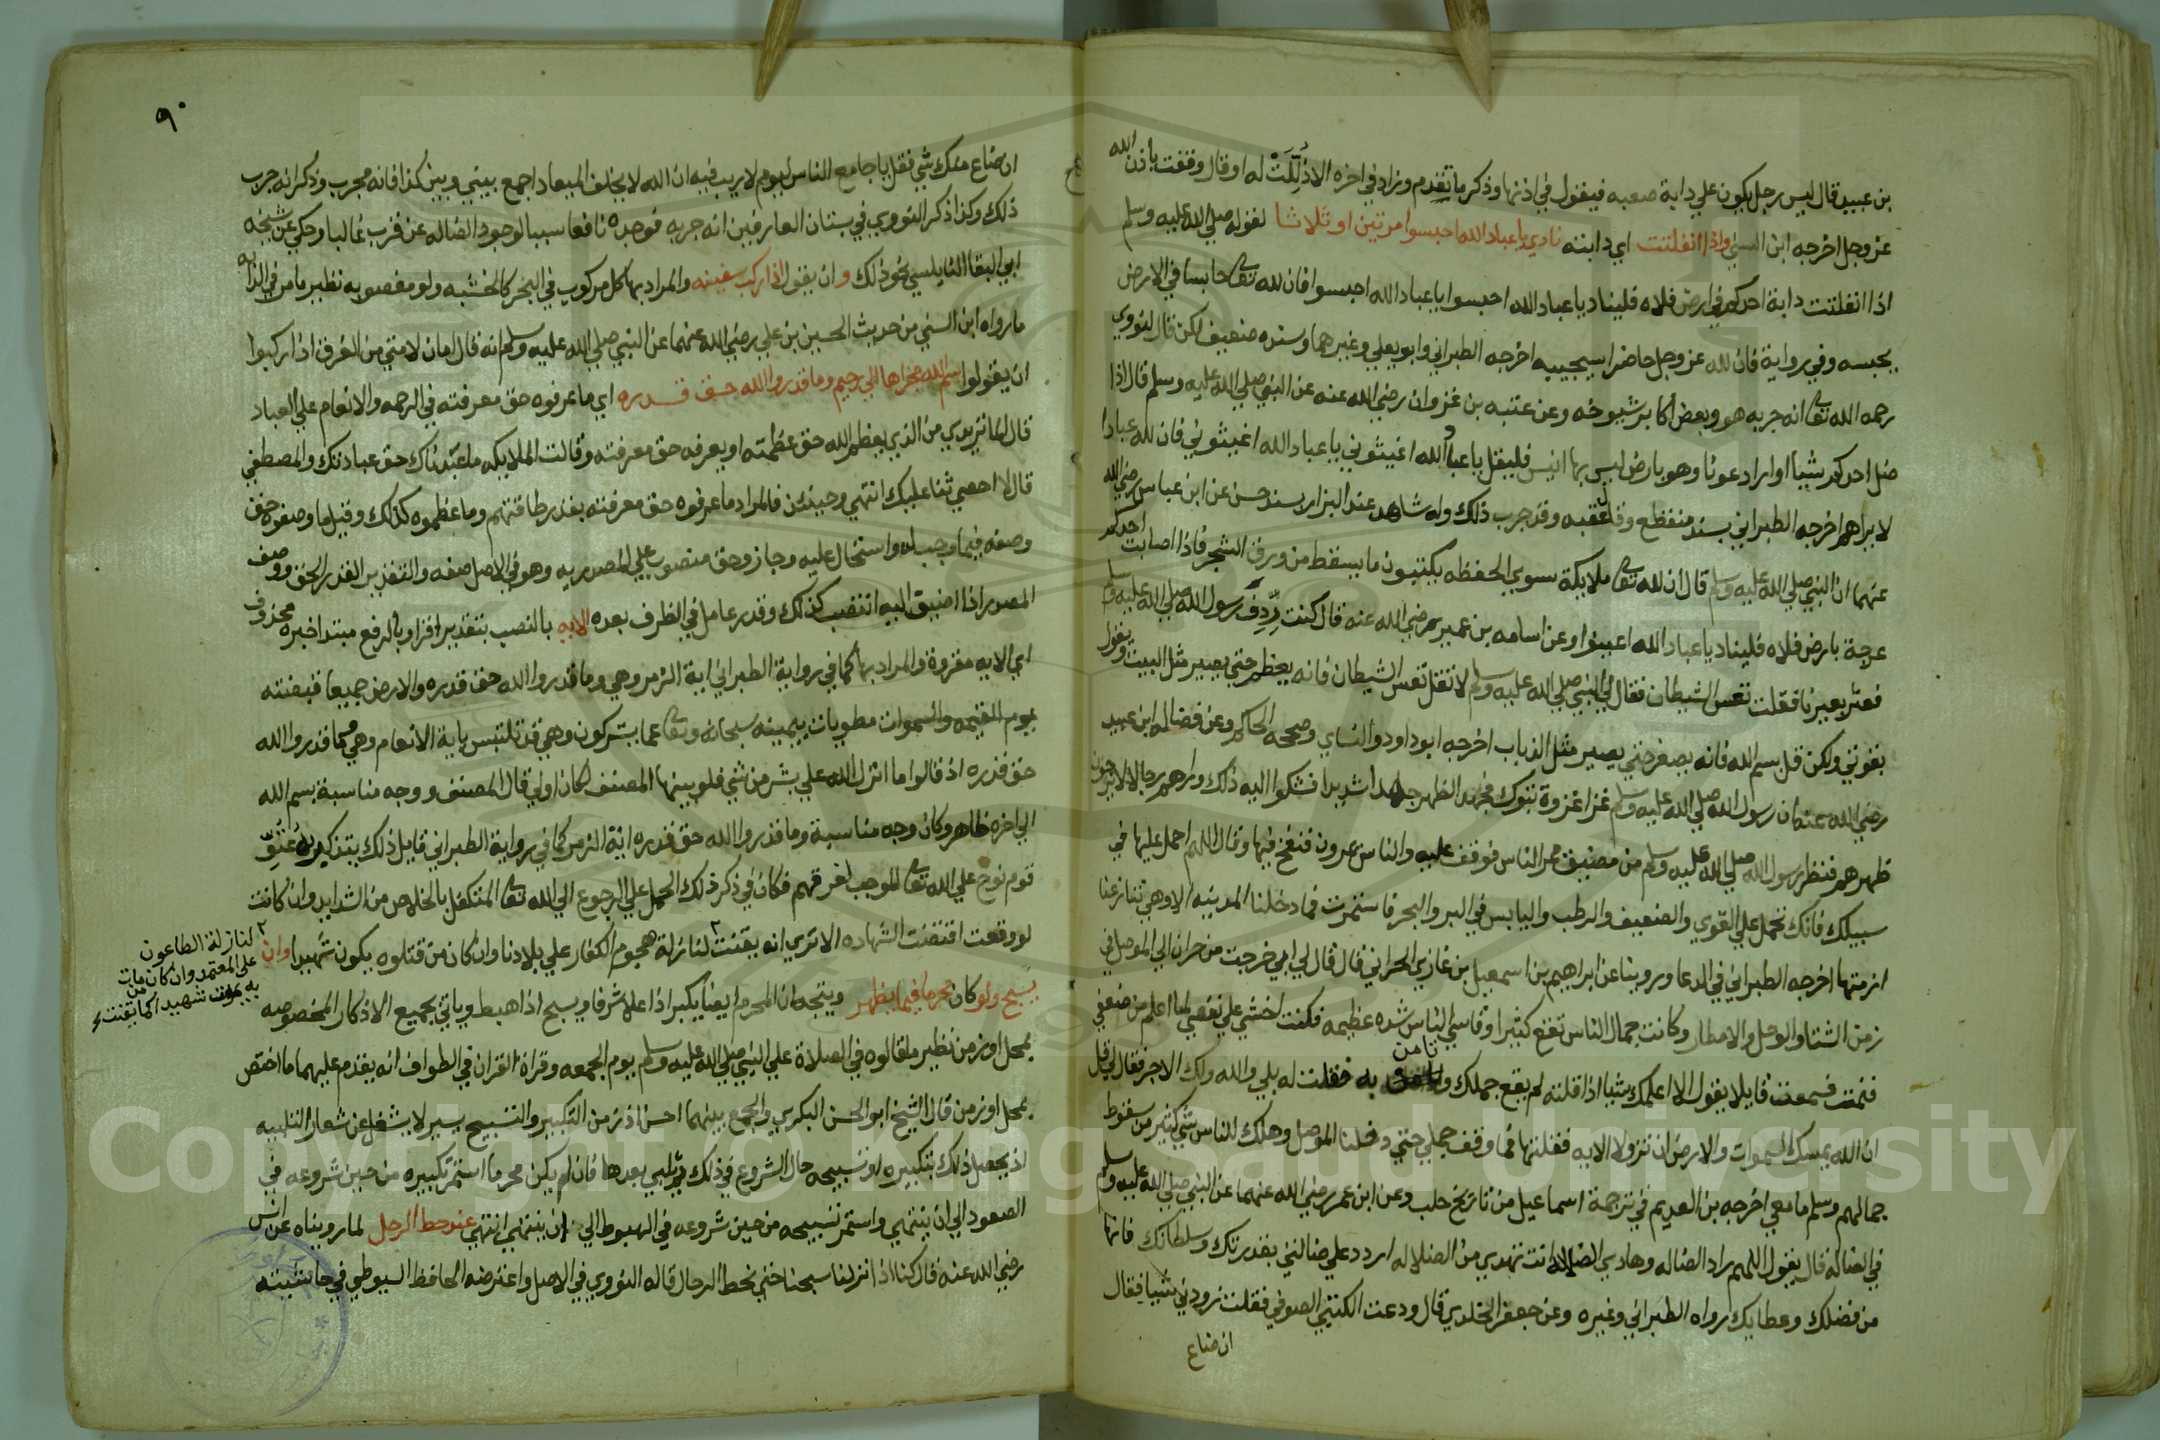 بن عبيد قال ليس رجل يكون علي دابة صعبه فيقول في اذنها وذكر ما تقدم وزاد في اخره الا ذُلِّلَتْ له او قال وقفت باذن الله
عز وجل اخرجه ابن السني واذا انفلتت اي دابته نادي يا عباد الله احبسوا مرتين او ثلاثا لقوله صلي الله عليه وسلم
اذا انفلتت دابة احدكم في ارض فلاه فليناد يا عباد الله احبسوا يا عباد الله احبسوا فان لله تعا حابسا في الارض
يحبسه وفي رواية فان لله عز وجل حاضرا سيجيبه اخرجه الطبراني وابو يعلي وغيرهما وسنده ضعيف لكن قال النووي
رحمه الله تعا انه جربه هو وبعض اكابر شيوخه وعن عتبه بن غزوان رضي الله عنه عن النبي صلي الله عليه وسلم قال اذا
ضل احدكم شيا او اراد عونا وهو بارض ليس بها انيس فليقل يا عباد الله اغيثوني يا عباد الله اغيثوني فان لله عبادا
لا يراهم اخرجه الطبراني بسند منقطع وقد جرب ذلك وله شاهد عند البزار بسند حسن عن ابن عباس رضي الله
عنهما ان النبي صلي الله عليه وسلم قال ان لله تعا ملايكة سوي الحفظه يكتبون ما يسقط من ورق الشجر فاذا اصابت احدكم
عرجة بارض فلاه فليناد يا عباد الله اعينوا وعن اسامه بن عمير رضي الله عنه قال كنت رِدف رسول الله صلي الله عليه وسلم
فعثر بعيرنا فقلت تعس الشيطان فقال لي النبي صلي الله عليه وسلم لا تقل تعس الشيطان فانه يعظم حتي يصير مثل البيت ويقول
بقوتي ولكن قل بسم الله فانه يصغر حتي يصير مثل الذباب اخرجه ابو داود والنساي وصححه الحاكم وعن فضاله ابن عبيد
رضي الله عنه ان رسول الله صلي الله عليه وسلم غزا غزوة تبوك فجهد الظهر جهدا شديدا فشكوا اليه ذلك وراهم رجالا لا يزجون
ظهرهم فنظر رسول الله صلي الله عليه وسلم من مضيق ممر الناس فوقف عليه والناس يمرون فنفخ فيها وقال اللهم احمل عليها في
سبيلك فانك تحمل علي القوي والضعيف والرطب واليابس في البر والبحر فاستمرت فما دخلنا المدينه الا وهي تنازعنا
ازمتها اخرجه الطبراني في الدعا وروينا عن ابراهيم بن اسمعيل بن غازي الحراني قال قال لي ابي خرجت من حران الي الموصل في
زمن الشتا والوحل والامطار وكانت جمال الناس تقع كثيرا وقاسي الناس شده عظيمه فكنت اخشي علي نفسي لما اعلم من ضعفي
فنمت فسمعت قايلا يقول الا اعلمك شيا اذا قلته لم يقع جملك وتامن به فقلت له بلي والله ولك الاجر فقال لي قل
ان الله يمسك السموات والارض ان تزولا الايه فقلتها فما وقف جملي حتي دخلنا الموصل وهلك الناس شي كثير من سقوط
جمالهم وسلم ما معي اخرجه بن العديم في ترجمة اسماعيل من تاريخ حلب وعن ابن عمر رضي الله عنهما عن النبي صلي الله عليه وسلم
في الضالة قال يقول اللهم راد الضاله وهادي الضلاله انت تهدي من الضلاله اردد علي ضالتي بقدرتك وسلطانك فانها
من فضلك وعطايك رواه الطبراني وغيره وعن جعفر الخلدي قال ودعت الكتبي الصوفي فقلت زودني شيا فقال
ان ضاع
٩٠
ان ضاع منك شي فقل يا جامع الناس ليوم لا ريب فيه ان الله لا يخلف الميعاد اجمع بيني وبين كذا فانه مجرب وذكر انه جرب
ذلك وكذا ذكر النووي في بستان العارفين انه جربه فوجده نافعا سببا لوجود الضاله عن قرب غالبا وحكي عن شيخه
ابي البقا النابلسي نحو ذلك وان يقول اذا ركب سفينه والمراد بها كل مركوب في البحر كالخشبه ولو مغصوبه نظير ما مر في الدابه
ما رواه ابن السني من حديث الحسين بن علي رضي الله عنهما عن النبي صلي الله عليه وسلم انه قال امان لامتي من الغرق اذا ركبوا
ان يقولوا بسم الله مجراها الي رحيم وما قدروا الله حق قدره اي ما عرفوه حق معرفته في الرحمه والانعام علي العباد
قال الماتريدي من الذي يعظم الله حق عظمته او يعرفه حق معرفته وقالت الملايكه ما عبدناك حق عبادتك والمصطفي
قال لا احصي ثنا عليك انتهي وحينئذ فالمراد ما عرفوه حق معرفته بقدر طاقتهم وما عظموه كذلك وقيل ما وصفوه حق
وصفه فيما وجب له واستحال عليه وجاز وحق منصوب علي المصدريه وهو في الاصل صفه والتقدير القدر الحق ووصف
المصدر اذا اضيف اليه انتصب كذلك وقدر عامل في الظرف بعده الايه بالنصب بتقدير اقرا وبالرفع مبتدا خبره محذوف
اي الايه مقروة والمراد بها كما في رواية الطبراني اية الزمر وهي وما قدروا الله حق قدره والارض جميعا قبضته
يوم القيمه والسموات مطويات بيمينه سبحانه وتعا عما يشركون وهي قد تلتبس باية الانعام وهي وما قدروا الله
حق قدره اذ قالوا ما انزل الله علي بشر من شي فلو بينها المصنف كان اولي قال المصنف ووجه مناسبة بسم الله
الي اخره ظاهر وكان وجه مناسبة وما قدروا الله حق قدره اية الزمر كما في رواية الطبراني قايل ذلك بتذكيره عُتُوّ
قوم نوح علي الله تعا الموجب لغرقهم فكان في ذكر ذلك الحمل علي الرجوع الي الله تعا المتكفل بالخلاص من الشدايد وان كانت
لو وقعت اقتضت الشهاده الا تري انه يقنت لنازلة هجوم الكفار علي بلادنا وان كان من قتلوه يكون شهيدا وان
لنازلة الطاعون
علي المعتمد وان كان من مات
به يموت شهيدا كما يقنت
يسبح ولو كان محرما فيما يظهر ويتجه ان المحرم ايضا يكبر اذا علا شرفا ويسبح اذا هبط وياتي بجميع الاذكار المخصوصه
بمحل او زمن نظير ما قالوه في الصلاة علي النبي صلي الله عليه وسلم يوم الجمعه وقراة القران في الطواف انه يقدم عليهما ما اختص
بمحل او زمن قال الشيخ ابو الحسن البكري والجمع بينهما احسن اذ زمن التكبير والتسبيح يسير لا يشغل عن شعار التلبيه
اذ يحصل ذلك بتكبيره او تسبيحه حال الشروع في ذلك ثم يلبي بعدها فان لم يكن محرما استمر تكبيره من حين شروعه في
الصعود الي ان ينتهي واستمر تسبيحه من حين شروعه في الهبوط الي ان ينتهي انتهي عند حط الرحل لما رويناه عن انس
رضي الله عنه قال كنا اذا نزلنا سبحنا حتي نحط الرحال قاله النووي في الاصل واعترضه الحافظ السيوطي في حاشيته
Copyright © King Saud University